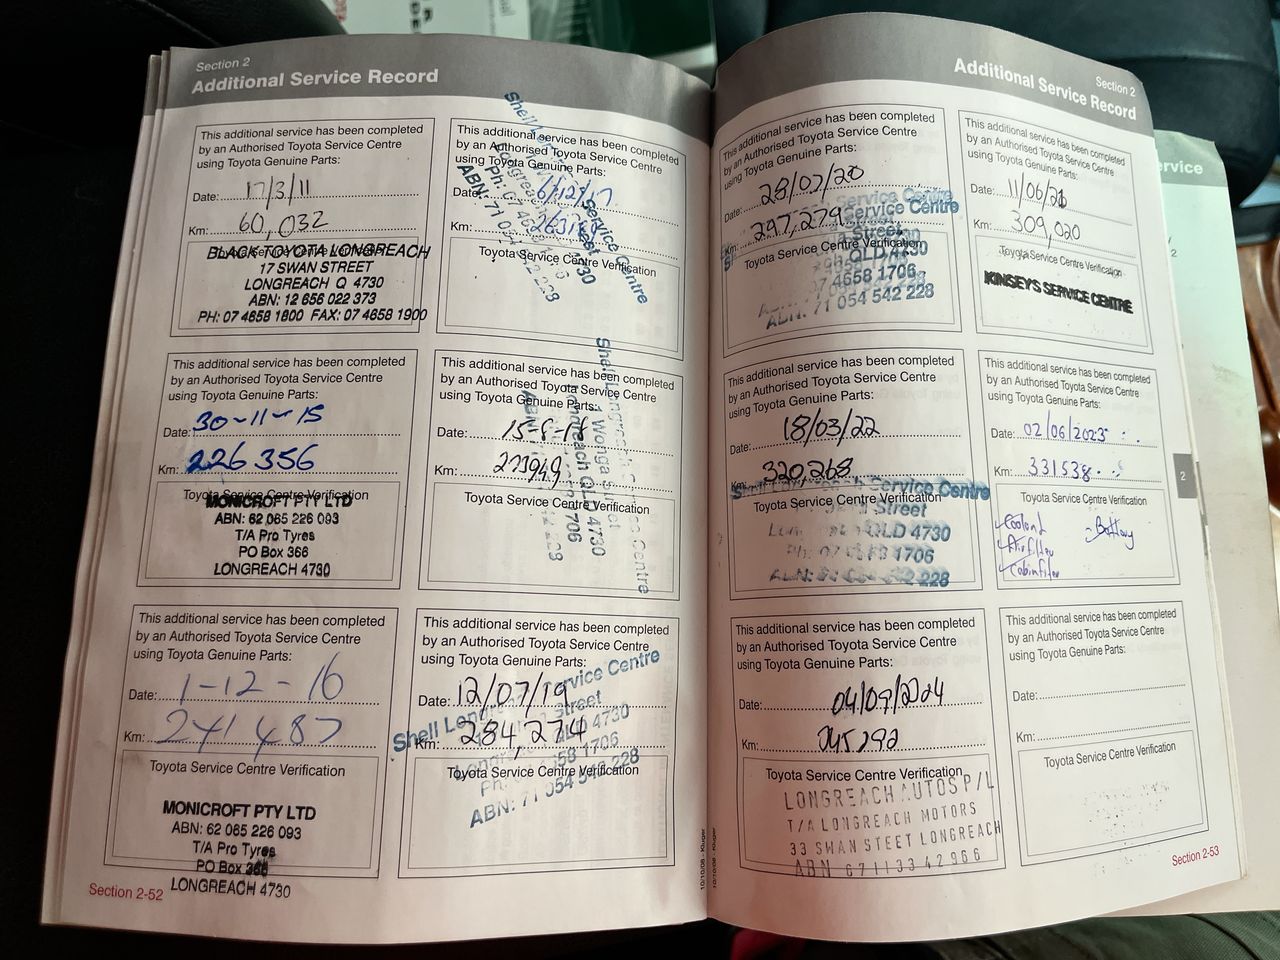 Section 2
Additional Service Record
This additional service has been completed
by an Authorised Toyota Service Centre
using Toyota Genuine Parts:
Date: 17/3/11
Km: 60,032
Toyota Service Centre Verification
BLACK TOYOTA LONGREACH
17 SWAN STREET
LONGREACH Q 4730
ABN: 12 656 022 373
PH: 07 4658 1800 FAX: 07 4658 1900
This additional service has been completed
by an Authorised Toyota Service Centre
using Toyota Genuine Parts:
Date: 30-11-15
Km: 226 356
Toyota Service Centre Verification
MONICROFT PTY LTD
ABN: 62 065 226 093
T/A Pro Tyres
PO Box 366
LONGREACH 4730
This additional service has been completed
by an Authorised Toyota Service Centre
using Toyota Genuine Parts:
Date: 1-12-16
Km: 241 487
Toyota Service Centre Verification
MONICROFT PTY LTD
ABN: 62 065 226 093
T/A Pro Tyres
PO Box 366
LONGREACH 4730
Section 2-52
This additional service has been completed
by an Authorised Toyota Service Centre
using Toyota Genuine Parts:
Date: 6/12/17
Km:
Toyota Service Centre Verification
Service Centre
4730
This additional service has been completed
by an Authorised Toyota Service Centre
using Toyota Genuine Parts:
Date:
Km: 273949
Toyota Service Centre Verification
QLD 4730
This additional service has been completed
by an Authorised Toyota Service Centre
using Toyota Genuine Parts:
Date: 12/07/19
Km: 284,274
Toyota Service Centre Verification
Shell Service Centre
Street
4730
58 1706
ABN: 71 054 542 228
Section 2
Additional Service Record
This additional service has been completed
by an Authorised Toyota Service Centre
using Toyota Genuine Parts:
Date: 28/07/20
Km: 297,279
Toyota Service Centre Verification
Service Centre
Street
QLD 4730
07 4658 1706
ABN: 71 054 542 228
This additional service has been completed
by an Authorised Toyota Service Centre
using Toyota Genuine Parts:
Date: 18/03/22
Km: 320,268
Toyota Service Centre Verification
Shell Service Centre
Street
QLD 4730
1706
228
This additional service has been completed
by an Authorised Toyota Service Centre
using Toyota Genuine Parts:
Date: 04/09/2024
Km:
Toyota Service Centre Verification
LONGREACH AUTOS P/L
T/A LONGREACH MOTORS
33 SWAN STEET LONGREACH
ABN 67113342966
This additional service has been completed
by an Authorised Toyota Service Centre
using Toyota Genuine Parts:
Date: 11/06/21
Km: 309,020
Toyota Service Centre Verification
KINSEYS SERVICE CENTRE
This additional service has been completed
by an Authorised Toyota Service Centre
using Toyota Genuine Parts:
Date: 02/06/2023
Km: 331538
Toyota Service Centre Verification
Coolant
Battery
Airfilter
Cabinfilter
This additional service has been completed
by an Authorised Toyota Service Centre
using Toyota Genuine Parts:
Date:
Km:
Toyota Service Centre Verification
Section 2-53
2
10/10/08 - Kluger